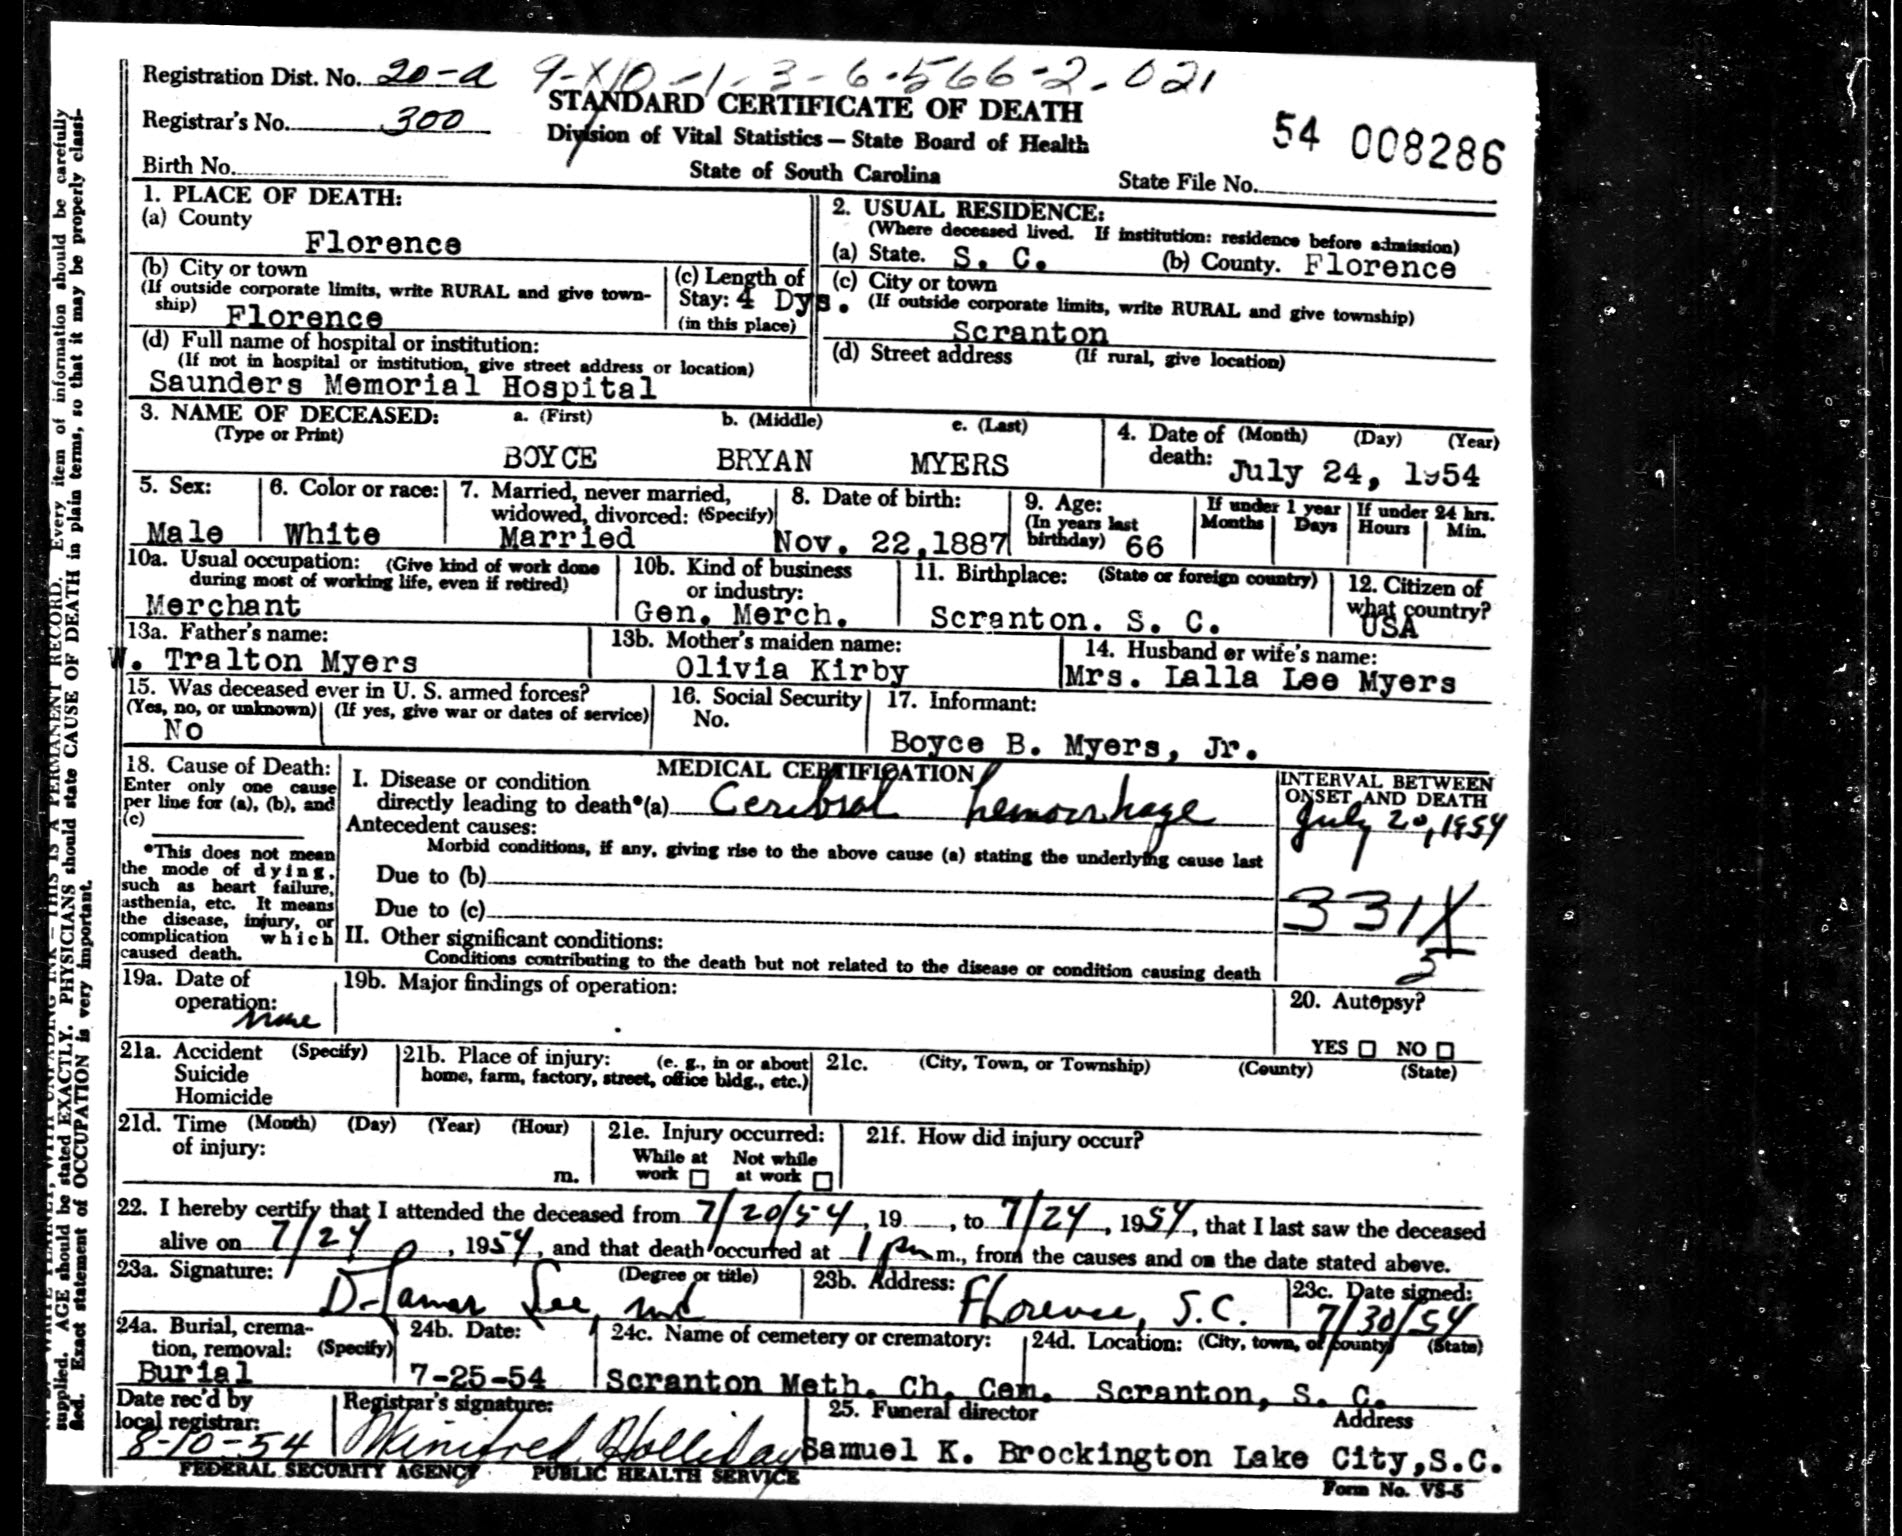 Registration Dist. No. 20-a 9-X10-1-3-6-566-2-021
STANDARD CERTIFICATE OF DEATH
Registrar's No. 300
Division of Vital Statistics — State Board of Health
54 008286
Birth No.
State of South Carolina
State File No.
1. PLACE OF DEATH:
(a) County
Florence
(b) City or town
(If outside corporate limits, write RURAL and give town-
ship) Florence
(c) Length of
Stay: 4 Dys.
(in this place)
(d) Full name of hospital or institution:
(If not in hospital or institution, give street address or location)
Saunders Memorial Hospital
2. USUAL RESIDENCE:
(Where deceased lived. If institution: residence before admission)
(a) State. S. C. (b) County. Florence
(c) City or town
(If outside corporate limits, write RURAL and give township)
Scranton
(d) Street address (If rural, give location)
3. NAME OF DECEASED: a. (First) b. (Middle) c. (Last)
(Type or Print)
BOYCE BRYAN MYERS
4. Date of (Month) (Day) (Year)
death: July 24, 1954
5. Sex:
Male
6. Color or race:
White
7. Married, never married,
widowed, divorced: (Specify)
Married
8. Date of birth:
Nov. 22,1887
9. Age:
(In years last
birthday) 66
If under 1 year
Months Days
If under 24 hrs.
Hours Min.
10a. Usual occupation: (Give kind of work done
during most of working life, even if retired)
Merchant
10b. Kind of business
or industry:
Gen. Merch.
11. Birthplace: (State or foreign country)
Scranton. S. C.
12. Citizen of
what country?
USA
13a. Father's name:
W. Tralton Myers
13b. Mother's maiden name:
Olivia Kirby
14. Husband or wife's name:
Mrs. Lalla Lee Myers
15. Was deceased ever in U. S. armed forces?
(Yes, no, or unknown) (If yes, give war or dates of service)
No
16. Social Security
No.
17. Informant:
Boyce B. Myers, Jr.
18. Cause of Death:
Enter only one cause
per line for (a), (b), and
(c)
*This does not mean
the mode of dying,
such as heart failure,
asthenia, etc. It means
the disease, injury, or
complication which
caused death.
MEDICAL CERTIFICATION
I. Disease or condition
directly leading to death*(a) Cerebral hemorrhage
Antecedent causes:
Morbid conditions, if any, giving rise to the above cause (a) stating the underlying cause last
Due to (b)
Due to (c)
II. Other significant conditions:
Conditions contributing to the death but not related to the disease or condition causing death
INTERVAL BETWEEN
ONSET AND DEATH
July 20, 1954
331X
5
19a. Date of
operation:
None
19b. Major findings of operation:
20. Autopsy?
YES NO
21a. Accident (Specify)
Suicide
Homicide
21b. Place of injury: (e. g., in or about
home, farm, factory, street, office bldg., etc.)
21c. (City, Town, or Township) (County) (State)
21d. Time (Month) (Day) (Year) (Hour)
of injury:
m.
21e. Injury occurred:
While at Not while
work at work
21f. How did injury occur?
22. I hereby certify that I attended the deceased from 7/20/54, 19 , to 7/24, 1954, that I last saw the deceased
alive on 7/24, 1954, and that death occurred at 1 pm m., from the causes and on the date stated above.
23a. Signature: (Degree or title)
D-Lamar Lee, md
23b. Address:
Florence, S.C.
23c. Date signed:
7/30/54
24a. Burial, crema-
tion, removal: (Specify)
Burial
24b. Date:
7-25-54
24c. Name of cemetery or crematory:
Scranton Meth. Ch. Cem.
24d. Location: (City, town, or county) (State)
Scranton, S. C.
Date rec'd by
local registrar:
8-10-54
Registrar's signature:
Winifred Holliday
25. Funeral director Address
Samuel K. Brockington Lake City,S.C.
FEDERAL SECURITY AGENCY PUBLIC HEALTH SERVICE
Form No. VS-5
THIS IS A PERMANENT RECORD. Every item of information should be carefully
supplied. AGE should be stated EXACTLY. PHYSICIANS should state CAUSE OF DEATH in plain terms, so that it may be properly classi-
fied. Exact statement of OCCUPATION is very important.